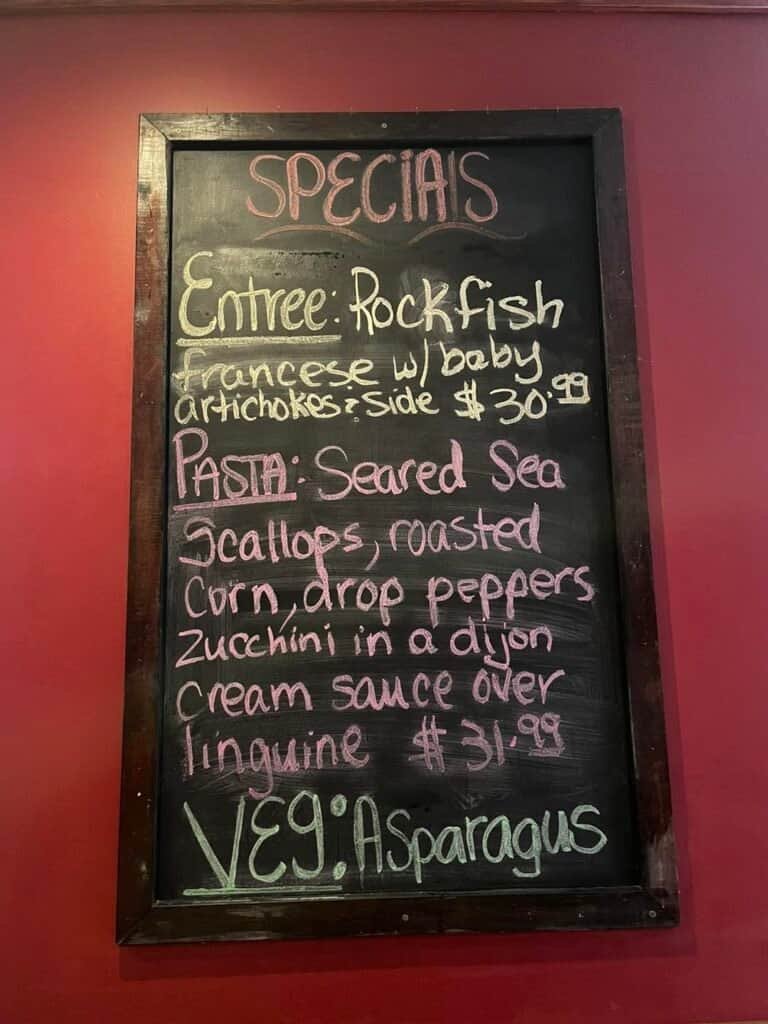 SPECIAlS
Entree: Rockfish
francese w/ baby
artichokes & side $30.99
PASTA: Seared Sea
Scallops, roasted
Corn, drop peppers
zucchini in a dijon
cream sauce over
linguine $31.99
VEg: Asparagus